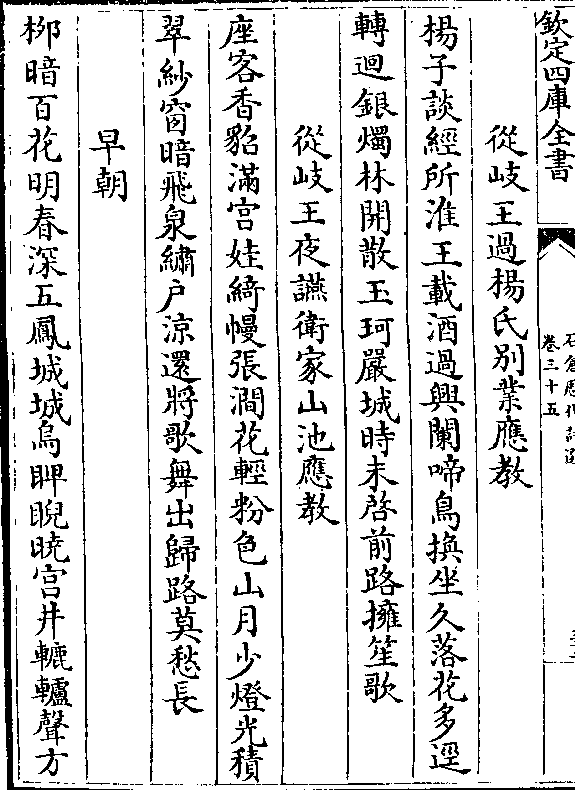 欽定四庫全書
石倉歷代詩選
卷三十五
從岐王過楊氏別業應教
楊子談經所淮王載酒過興闌啼鳥換坐久落花多逕
轉迴銀燭林開散玉珂嚴城時未啓前路擁笙歌
從岐王夜讌衛家山池應教
座客香貂滿宮娃綺幔張澗花輕粉色山月少燈光積
翠紗窗暗飛泉繡戶涼還將歌舞出歸路莫愁長
早朝
柳暗百花明春深五鳳城城烏睥睨曉宮井轆轤聲方